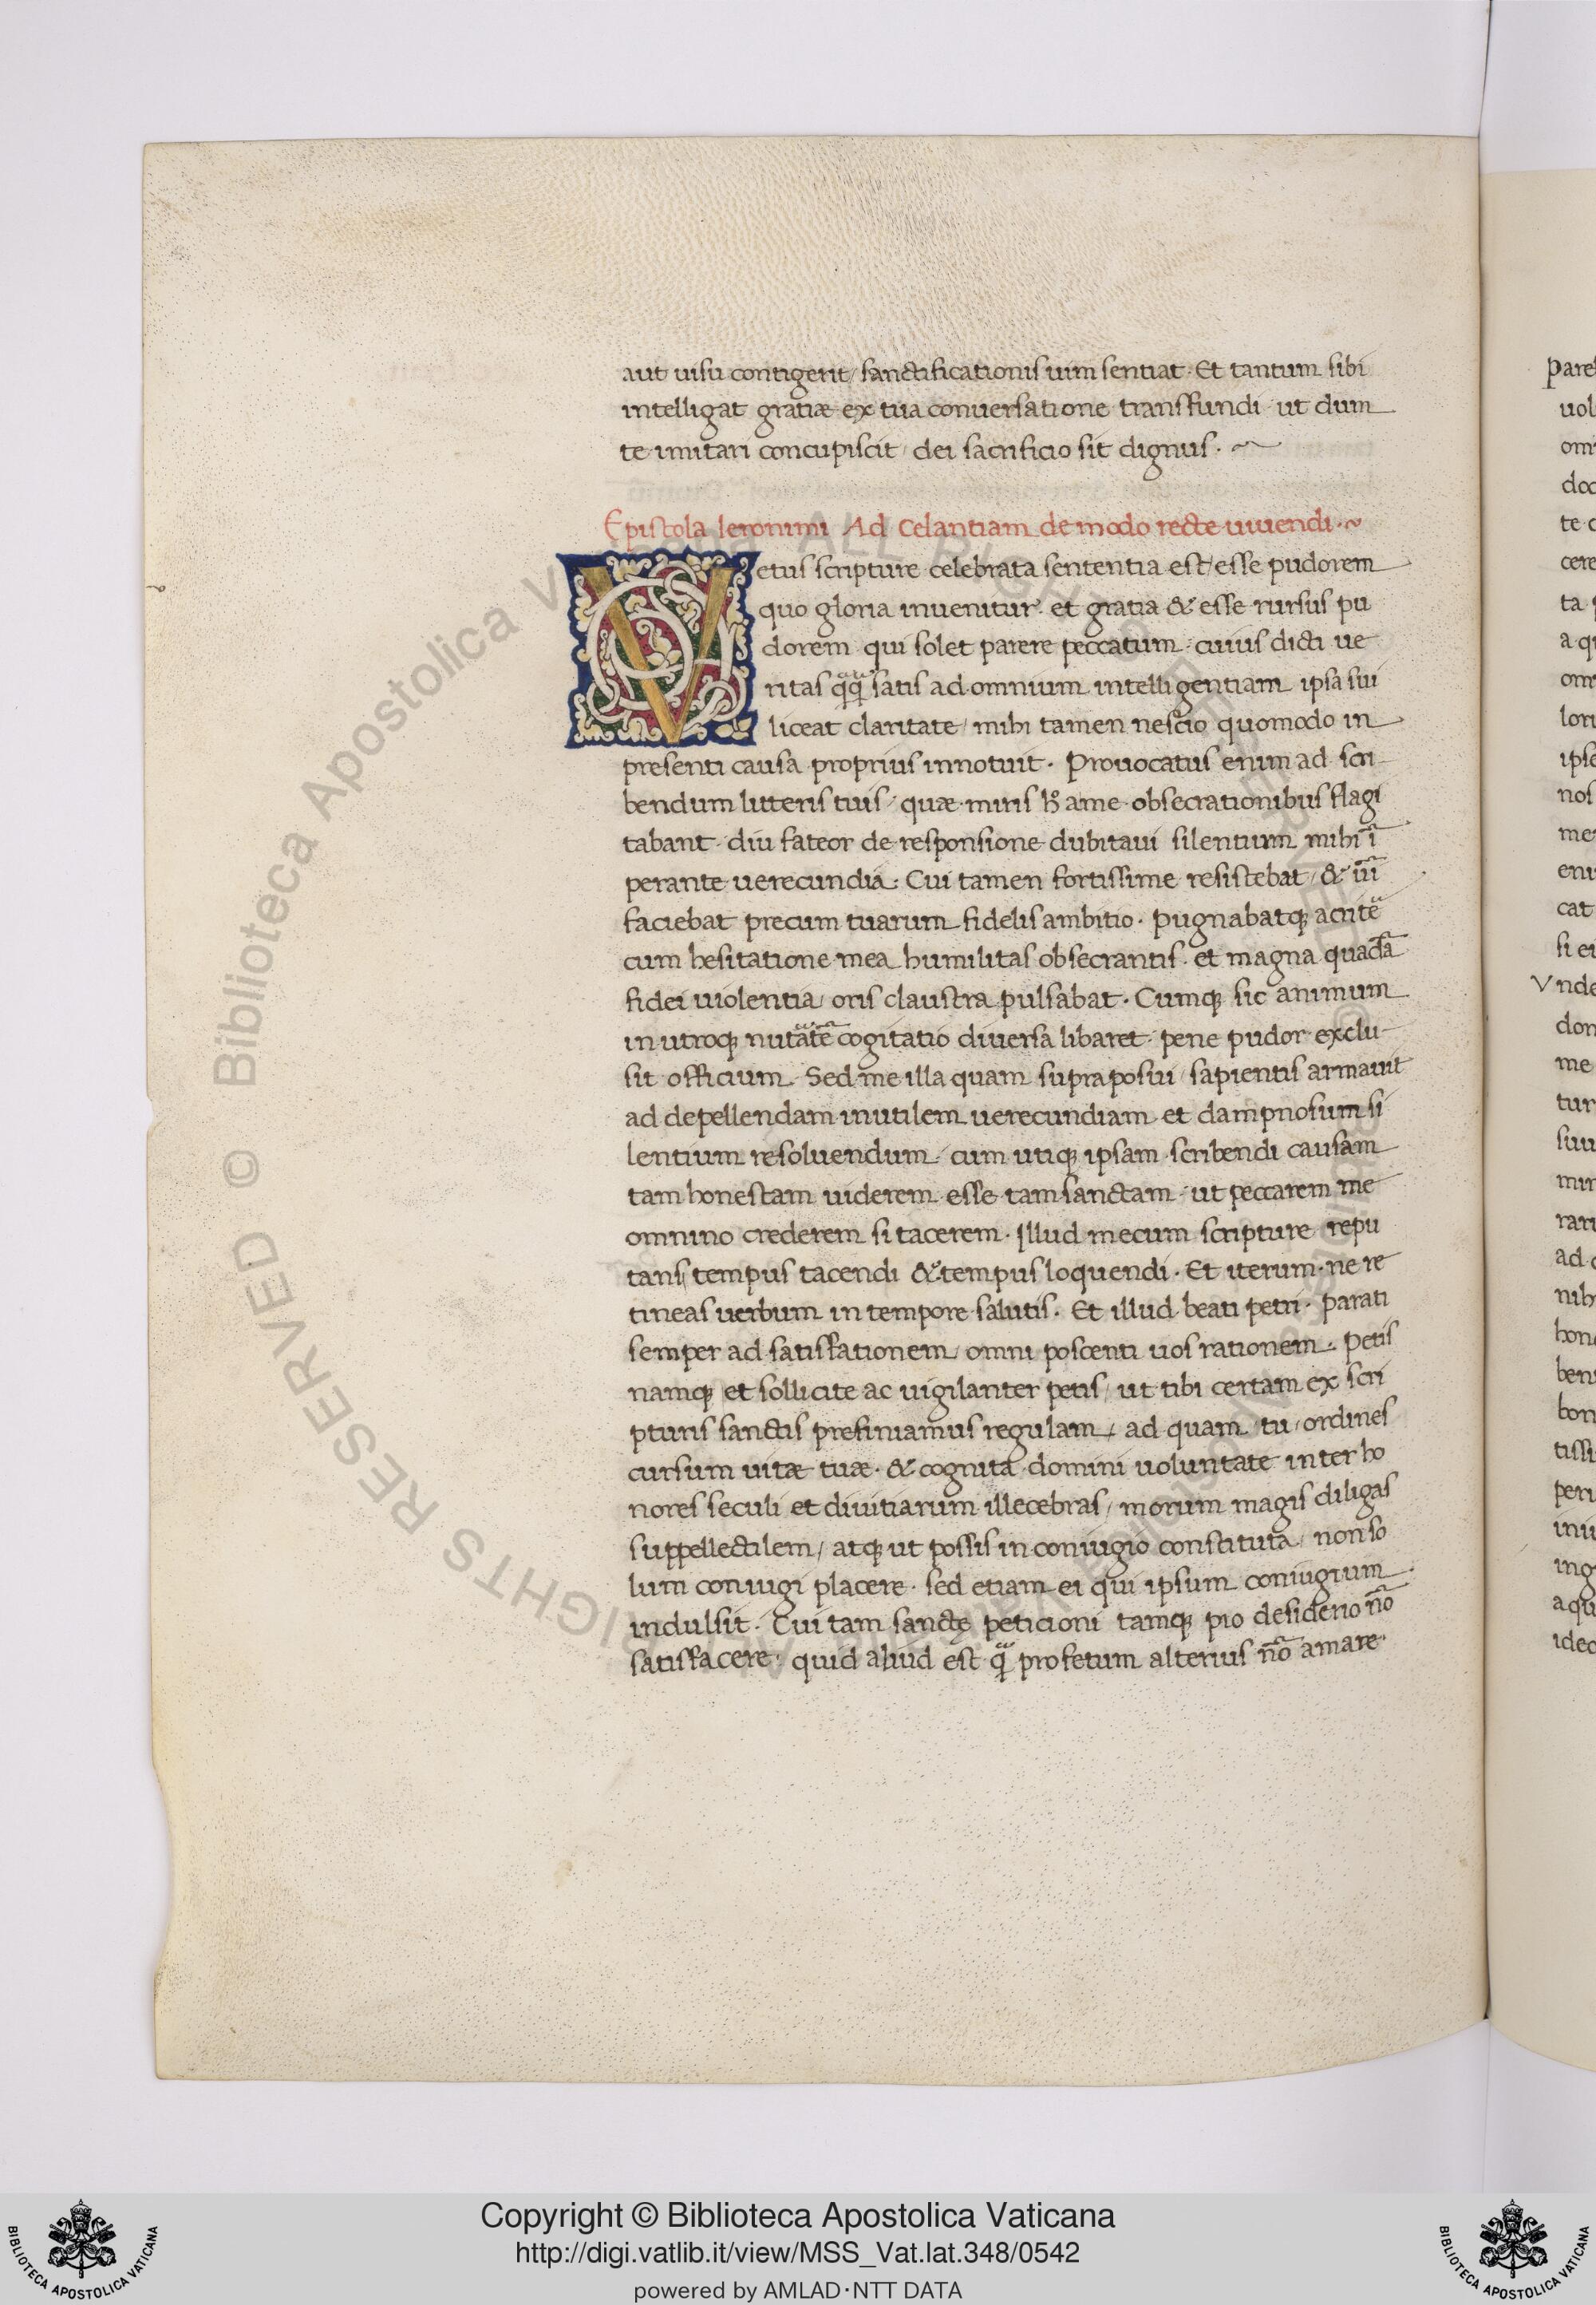 aut uisu contigerit / sanctificationis uim sentiat · Et tantum sibi
intelligat gratiæ ex tua conuersatione transfundi · ut dum
te imitari concupiscit / dei sacrificio sit dignus ·
Epistola Ieronimi Ad Celantiam de modo recte uiuendi · ~
Vetus scripture celebrata sententia est / esse pudorem
quo gloria inuenitur · et gratia & esse rursus pu
dorem qui solet parere peccatum · cuius dicti ue
ritas q̃q̃ satis ad omnium intelligentiam ipsa sui
liceat claritate / mihi tamen nescio quomodo in
presenti causa proprius innotuit · Prouocatus enim ad scri-
bendum litteris tuis / quæ miris h̊ ame obsecrationibus flagi
tabant · diu fateor de responsione dubitaui silentium mihi ĩ
perante uerecundia · Cui tamen fortissime resistebat / & uĩ
faciebat precum tuarum fidelis ambitio · Pugnabatq; acrite᷑
cum hesitatione mea humilitas obsecrantis · et magna quadã
fidei uiolentia / oris claustra pulsabat · Cumq; sic animum
in utroq; nutãtẽ cogitatio diuersa libaret · pene pudor exclu-
sit officium · Sed me illa quam supra posui / sapientis armauit
ad depellendam inutilem uerecundiam et dampnosum si
lentium resoluendum · cum utiq; ipsam scribendi causam
tam honestam uiderem esse tam sanctam · ut peccarem me
omnino crederem si tacerem · Illud mecum scripture repu
tans / tempus tacendi & tempus loquendi · Et iterum · ne re
tineas uerbum in tempore salutis · Et illud beati petri · Parati
semper ad satisfationem / omni poscenti uos rationem · Petis
namq; et sollicite ac uigilanter petis / ut tibi certam ex scri
pturis sanctis prefiniamus regulam / ad quam tu / ordines
cursum uitæ tuæ · & cognita domini uoluntate inter ho
nores seculi et diuitiarum illecebras / morum magis diligas
suppellectilem / atq; ut possis in coniugio constituta / non so
lum coniugi placere · sed etiam ei qui ipsum coniugium
indulsit · Cui tam sanctę peticioni tamq; pio desiderio nõ
satisfacere · quid aliud est q̃ profetum alterius nõ amare·
© Biblioteca Apostolica Vaticana ALL RIGHTS RESERVED
Copyright © Biblioteca Apostolica Vaticana
http://digi.vatlib.it/view/MSS_Vat.lat.348/0542
powered by AMLAD·NTT DATA
BIBLIOTECA APOSTOLICA VATICANA
BIBLIOTECA APOSTOLICA VATICANA